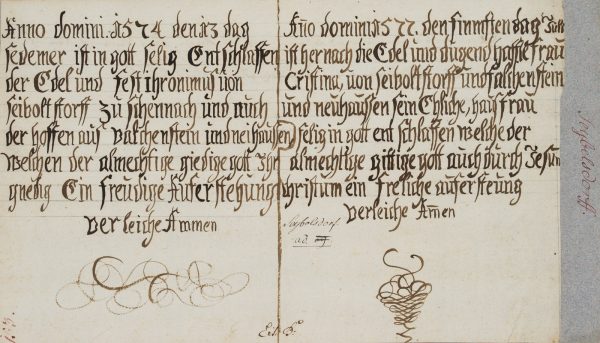 Anno domini 1574 den 13 dag
sedemer ist in gott selig Entschlaffen
der Edel und fest ihronimus von
seiboltstorff zu schennach und
der hoffen aus valckenstein und neihausen
welchen der almechtige giedige gott Ihr
gnedig Ein freudige Auferstehung
verleiche Ammen
Año domini 1577 den finnften dag Julli
ist hernach die Edel und dugend hafste frau
Cristina von seiboltstorff und falchenstein
und neuhaussen sein Ehliche haus frau
selig in gott ent schlaffen welche der
almechtige gittige gott auch durch Jesun
christum ein freliche aufersteung
verleiche Amen
Seybolsdorf
Seybolsdorff.